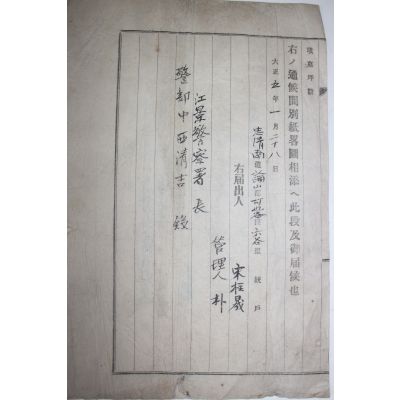 墳墓坪數
右ノ通候間別紙略圖相添ヘ此段及御届候也
大正五年一月二十八日
忠清南道論山郡可谷面六谷里 統 戶
右届出人
宋柱晟
管理人 朴
江景警察署長
警部中西清吉 殿